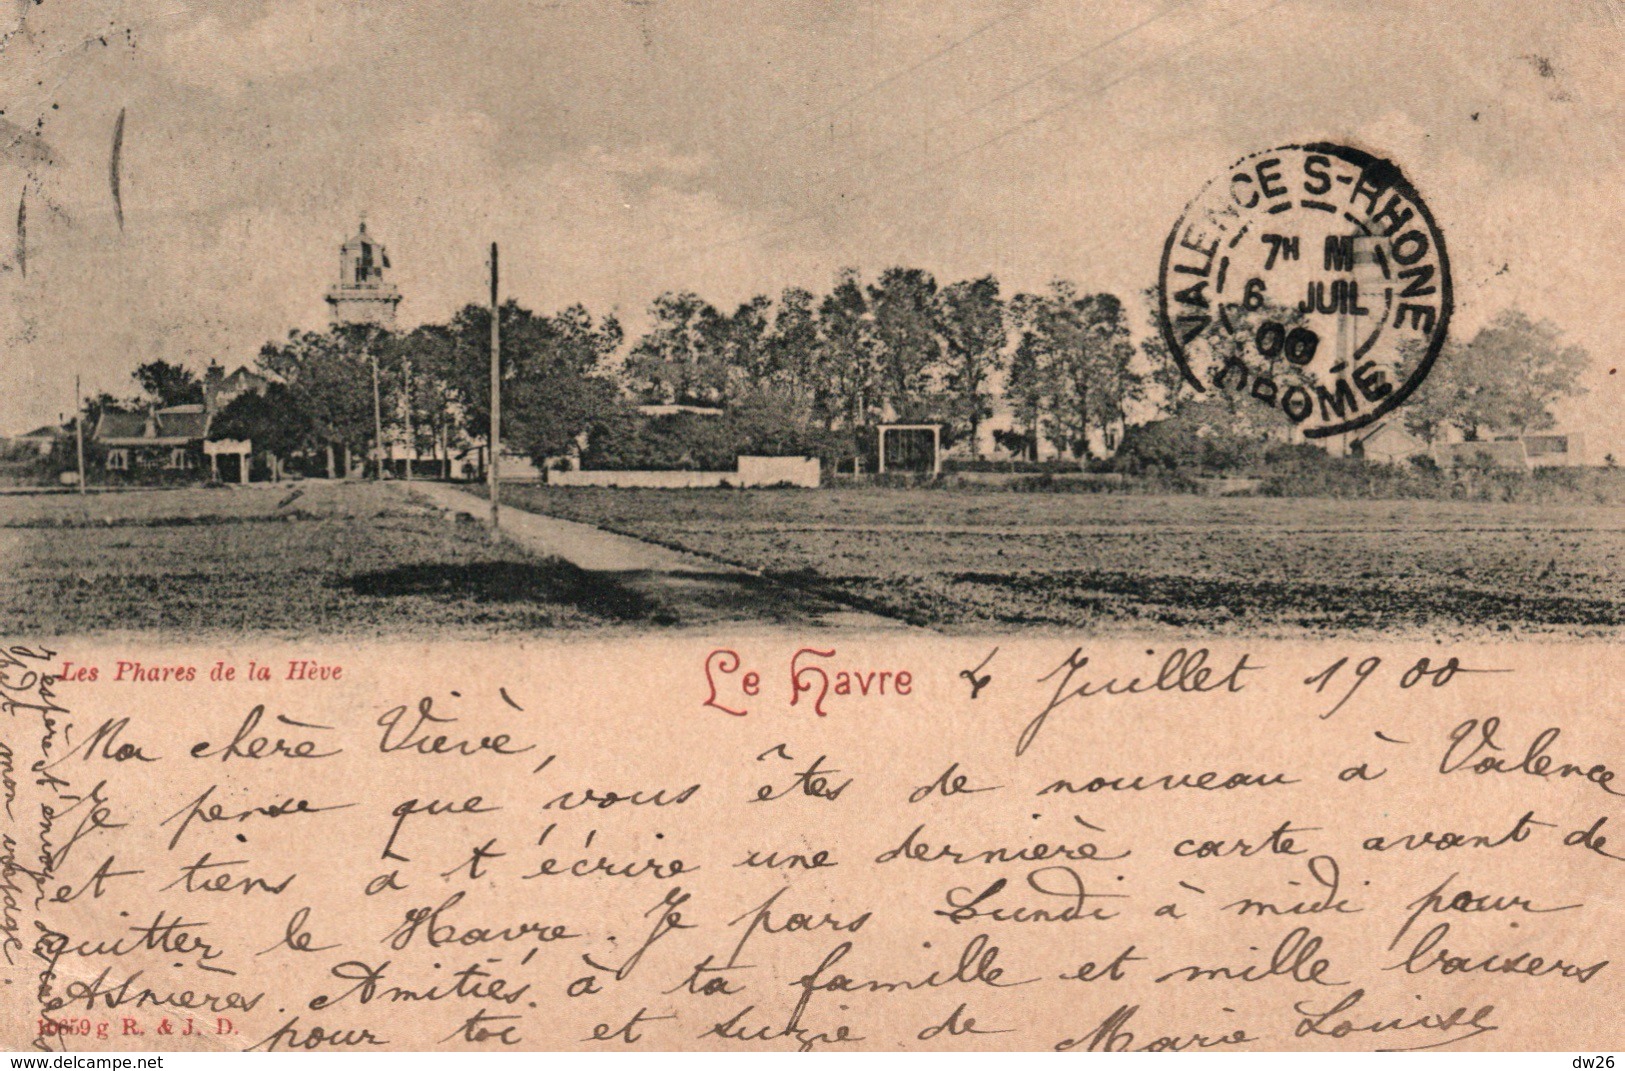 VALENCE S-RHONE
7H M
6 JUIL
00
DROME
Les Phares de la Hève
Le Havre 4 Juillet 1900
Ma chère Viève,
Je pense que vous êtes de nouveau à Valence
et tiens à t'écrire une dernière carte avant de
quitter le Havre. Je pars Lundi à midi pour
Asnières. Amitiés à ta famille et mille baisers
pour toi et Suzie de Marie Louise
10659 g R. & J. D.
J'espère t'envoyer des cartes
pdt mon voyage.
dw26